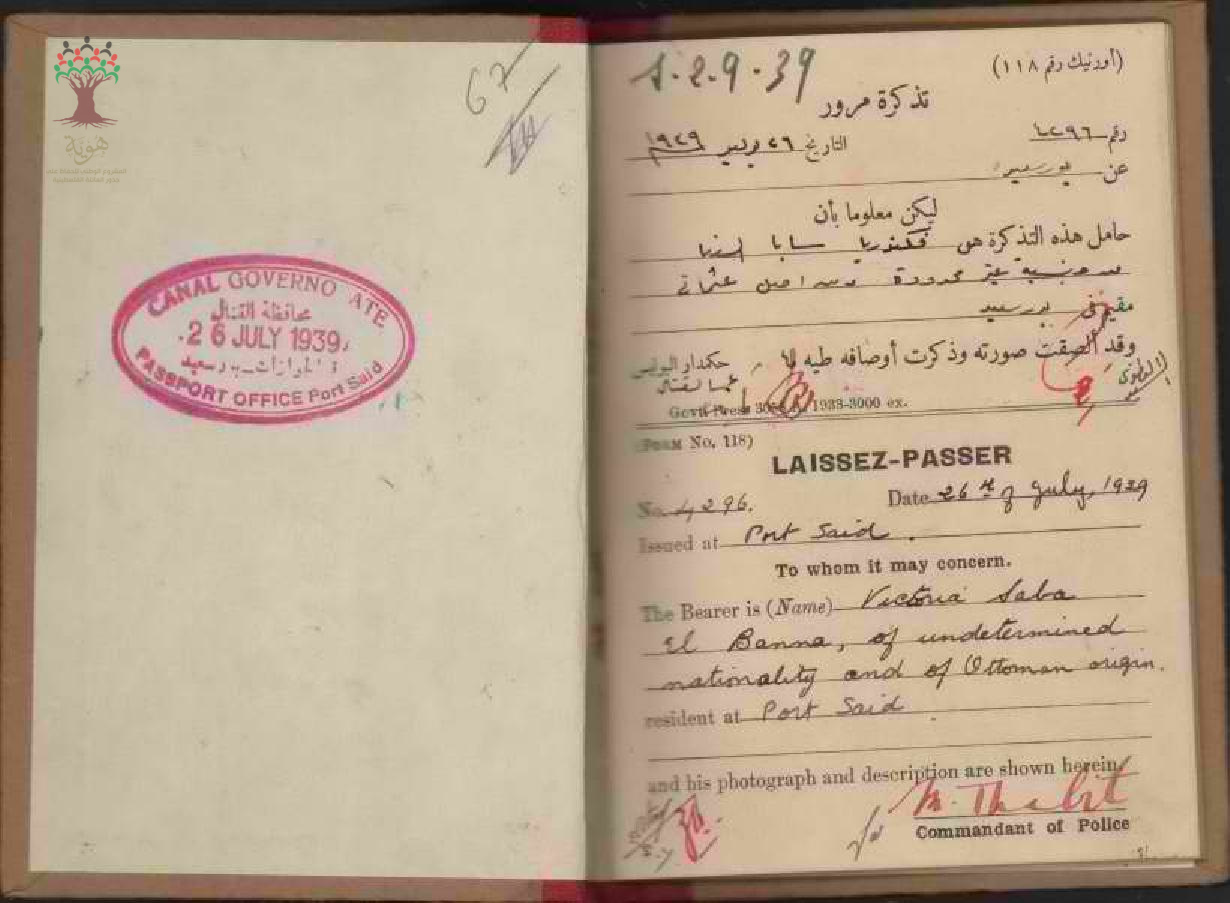 هوية
67
CANAL GOVERNO ATE
محافظة القنال
26 JULY 1939
PASSPORT OFFICE Port Said
1.2.9.39
(أورنيك رقم ١١٨)
تذكرة مرور
رقم ٤٢٩٦
التاريخ ٢٦ يوليو ١٩٣٩
عن بورسعيد
ليكن معلوما بأن
حامل هذه التذكرة هى فكتوريا سابا البنا
غير محدودة عثمانى
مقيم فى بورسعيد
وقد الصقت صورته وذكرت أوصافه طيه
حكمدار البوليس
Govt. Press 1938-3000 ex.
(FORM No. 118)
LAISSEZ-PASSER
No. 4296.
Date 26th of July, 1939
Issued at Port Said.
To whom it may concern.
The Bearer is (Name) Victoria Saba
El Banna, of undetermined
nationality and of Ottoman origin.
resident at Port Said
and his photograph and description are shown herein
M. Thabit
Commandant of Police